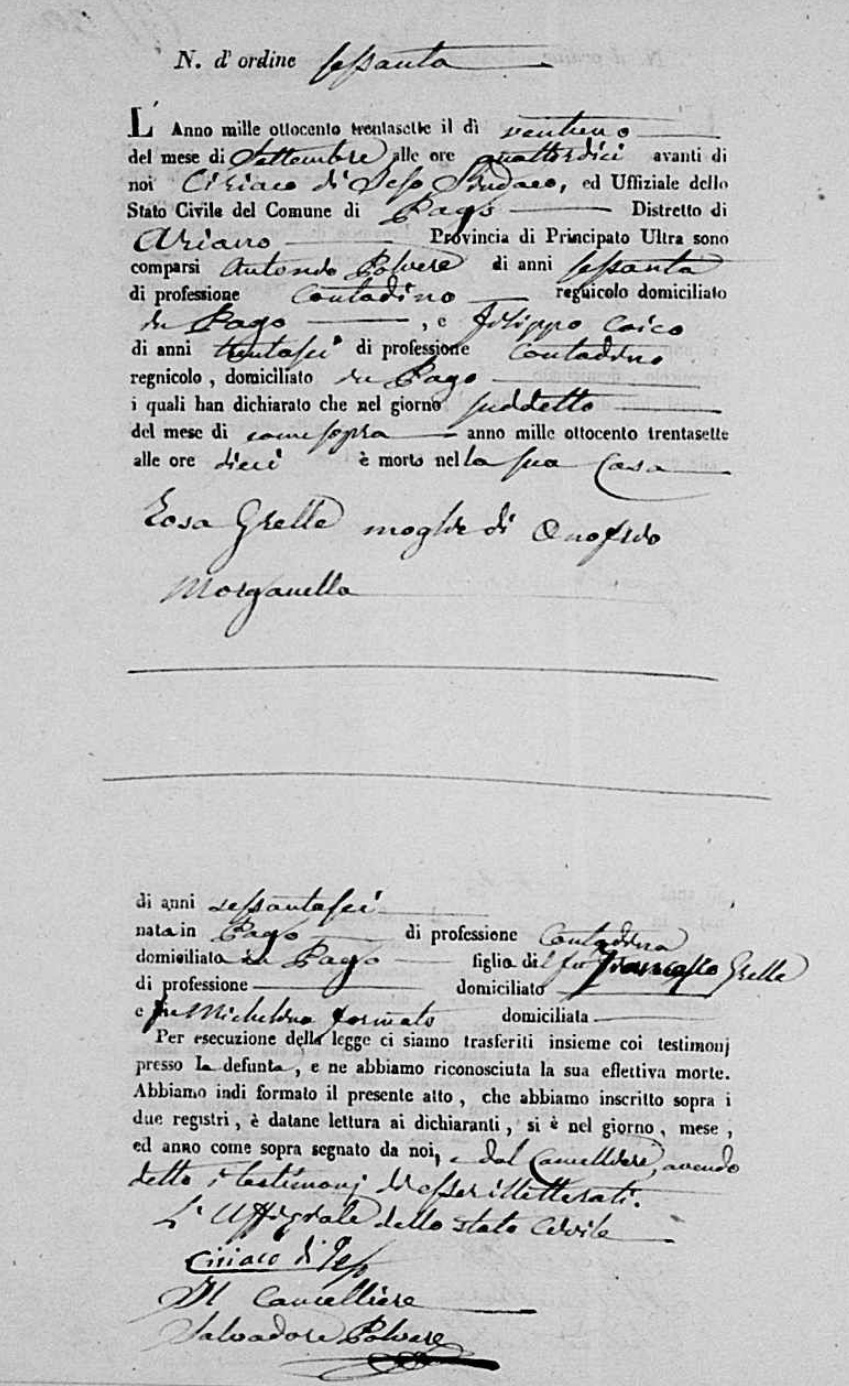 N. d' ordine sessanta
L' Anno mille ottocento trentasette il dì ventuno
del mese di Settembre alle ore quattordici avanti di
noi Ciriaco di Sindaco, ed Uffiziale dello
Stato Civile del Comune di Pago Distretto di
Ariano Provincia di Principato Ultra sono
comparsi Antonio Polvere di anni sessanta
di professione Contadino regnicolo domiciliato
in Pago , e Filippo Caico
di anni trentasei di professione Contadino
regnicolo , domiciliato in Pago
i quali han dichiarato che nel giorno suddetto
del mese di come sopra anno mille ottocento trentasette
alle ore dieci è morto nella sua Casa
Rosa Grelle moglie di Onofrio
Morganella
di anni sessantasei
nata in Pago di professione Contadina
domiciliata in Pago figlia del fu Grelle
di professione domiciliato
e fu Michelina Formato domiciliata
Per esecuzione della legge ci siamo trasferiti insieme coi testimonj
presso la defunta , e ne abbiamo riconosciuta la sua effettiva morte.
Abbiamo indi formato il presente atto , che abbiamo inscritto sopra i
due registri , è datane lettura ai dichiaranti , si è nel giorno , mese ,
ed anno come sopra segnato da noi, e dal Cancelliere, avendo
detto i testimonj di esser illetterati.
L' Uffiziale dello stato civile
Ciriaco di
Il Cancelliere
Salvadore Polvere